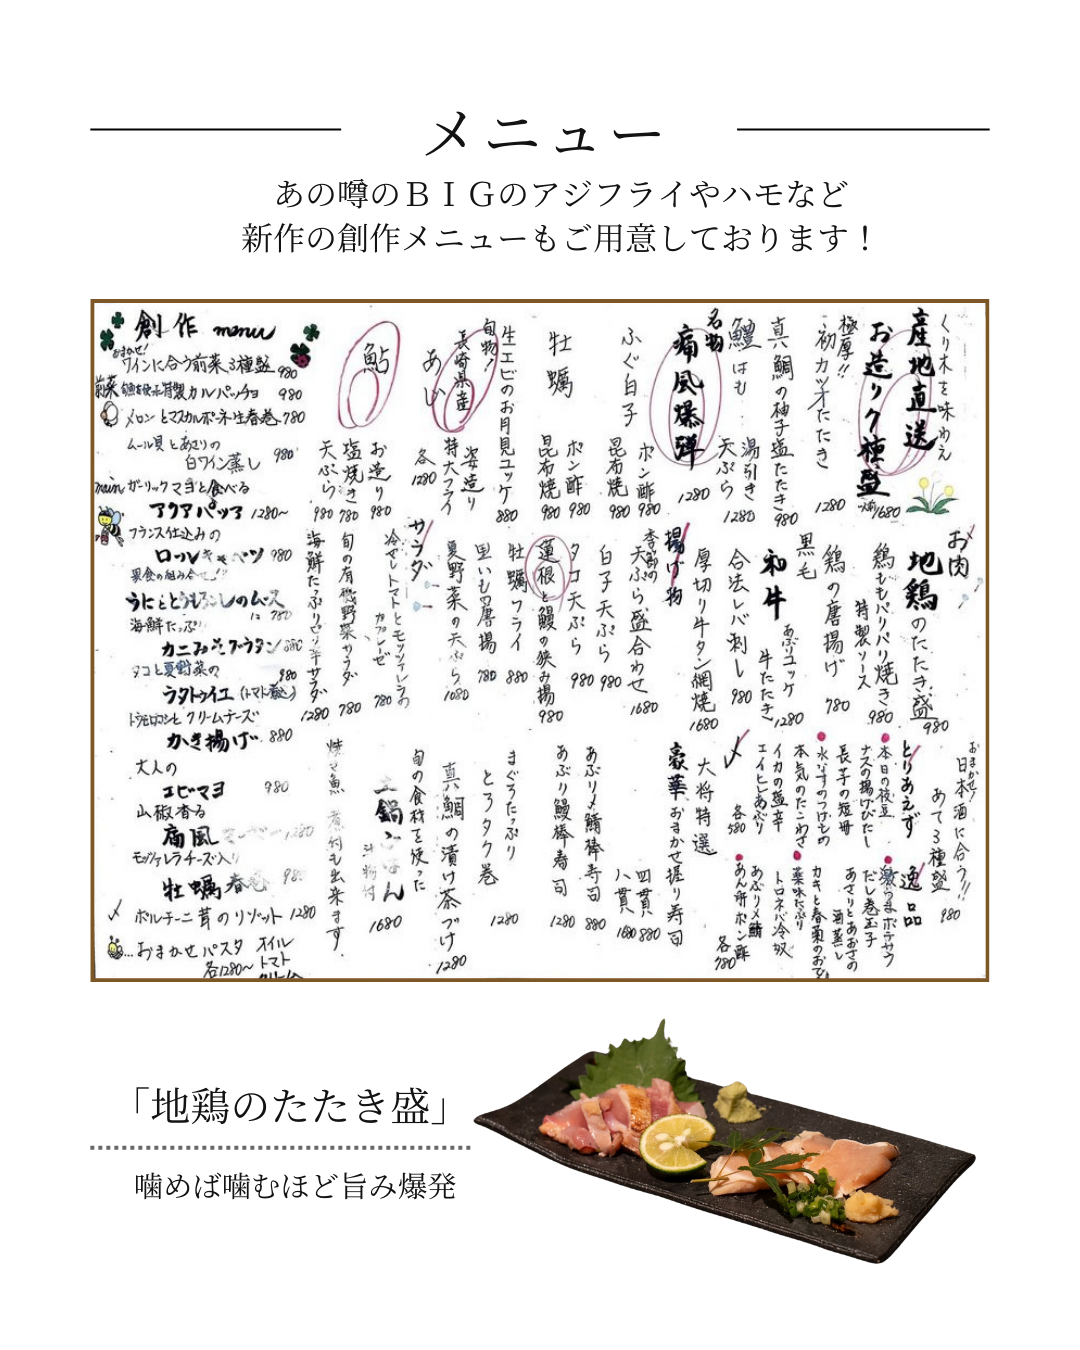 メニュー
あの噂のＢＩＧのアジフライやハモなど
新作の創作メニューもご用意しております！
くり木を味わえ
産地直送
お造り7種盛
一人前1680
極厚!!
初カツオたたき
1280
真鯛の柚子塩たたき
980
鱧はも
湯引き
天ぷら
1280
名物
痛風爆弾
1280
ふぐ白子
ポン酢 980
昆布焼 980
牡蠣
ポン酢 980
昆布焼 980
生エビのお月見ユッケ
880
旬物!
長崎県産
あじ
姿造り
特大フライ
各1280
鮎
お造り 980
塩焼き 780
天ぷら 980
お肉
地鶏のたたき盛
980
鶏ももパリパリ焼き
特製ソース
980
鶏の唐揚げ
780
黒毛
和牛
あぶりユッケ
牛たたき
1280
合法レバ刺し
980
厚切り牛タン網焼
1680
揚げ物
季節の
天ぷら盛合わせ
1680
白子天ぷら
980
タコ天ぷら
980
蓮根と鰻の挟み揚
980
牡蠣フライ
880
里いも唐揚
780
夏野菜の天ぷら
1080
サラダ
冷やしトマトとモッツァレラの
カプレーゼ
780
旬の有機野菜サラダ
780
海鮮たっぷりピリ辛サラダ
1280
おまかせ!
日本酒に合う!!
あて3種盛
980
とりあえず
逸品
本日の枝豆
ナスの揚げびたし
長芋の短冊
水なすのつけもの
本気のたこわさ
イカの塩辛
エイヒレあぶり
各580
激うまポテサラ
だし巻玉子
あさりとあおさの
酒蒸し
カキと春菊のおひ
薬味たっぷり
トロネバ冷奴
あぶり〆鯖
あん肝ポン酢
各780
〆
大将特選
豪華おまかせ握り寿司
四貫 880
八貫 1680
あぶり〆鯖棒寿司
880
あぶり鰻棒寿司
1280
まぐろたっぷり
とろタク巻
1280
旬の食材を使った
真鯛の漬け茶づけ
1280
土鍋ごはん
汁物付
1680
焼き魚 煮付も出来ます.
創作 menu
おまかせ!
ワインに合う前菜3種盛 980
前菜
旬魚を使った特製カルパッチョ 980
メロンとマスカルポーネ生春巻 780
ムール貝とあさりの
白ワイン蒸し 980
main
ガーリックマヨと食べる
アクアパッツァ 1280~
フランス仕込みの
ロールキャベツ 980
異食の組み合せ!!
うにととうもろこしのムース
780
海鮮たっぷり
カニみそグラタン 880
タコと夏野菜の
ラタトゥイユ(トマト煮込) 980
トウモロコシとクリームチーズ
かき揚げ 880
大人の
エビマヨ 980
山椒香る
痛風 1280
モッツァレラチーズ入り
牡蠣春巻 980
〆 ポルチーニ茸のリゾット 1280
おまかせパスタ
オイル
トマト
クリーム
各1280~
「地鶏のたたき盛」
噛めば噛むほど旨み爆発